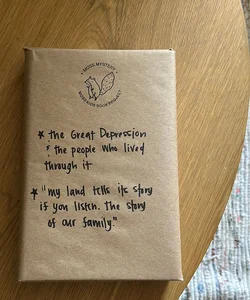 MOSS MYSTERY
★ the Great Depression
★ the people who lived
through it
★ "my land tells its story
if you listen. the story
of our family."